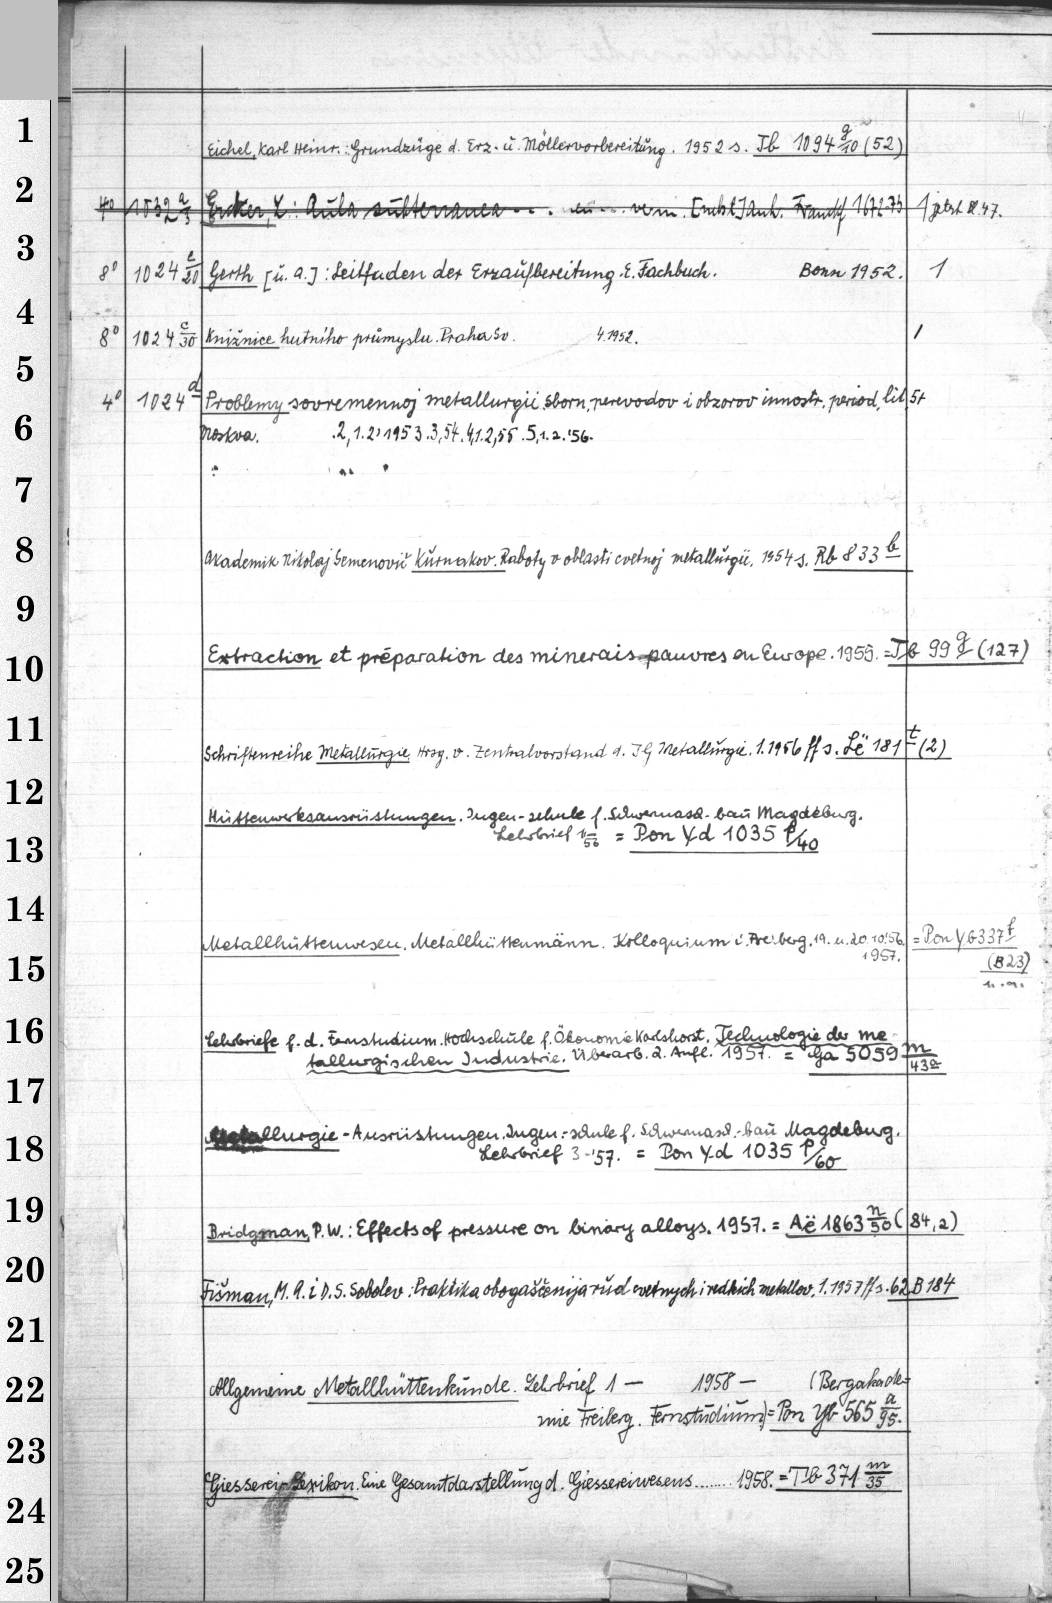 1
Eichel, Karl Heinr.: Grundzüge d. Erz- u. Möllervorbereitung. 1952 s. Tb 1094 g/10 (52)
2
4° 1032 a/3 Ercker, L: Aula subterranea ... verm. Anh. Franckf 1672-73 1 jetzt 47.
3
8° 1024 c/20 Gerth [u. a.]: Leitfaden der Erzaufbereitung. E. Fachbuch. Bonn 1952. 1
4
8° 1024 c/30 Knižnice hutního průmyslu. Praha Sv. 4.1952. 1
5
4° 1024 d Problemy sovremennoj metallurgii. sborn. perevodov i obzorov innostr. period. lit. 5+
6
Moskva. .2,1.2, 1953.3,54.4,1.2,55.5,1.2.'56.
7
8
Akademik Nikolaj Semenovič Kurnakov. Raboty v oblasti cvetnoj metallurgii. 1954 s. Rb 833 b
9
10
Extraction et préparation des minerais pauvres en Europe. 1955. = Tb 99 g (127)
11
Schriftenreihe Metallurgie. Hrsg. v. Zentralvorstand d. IG Metallurgie. 1.1956 ff s. Lë 181 t (2)
12
Hüttenwerksausrüstungen. Ingen-schule f. Schwermasch-bau Magdeburg.
13
Lehrbrief 1-/56 = Pon Yd 1035 p/40
14
Metallhüttenwesen. Metallhüttenmänn. Kolloquium i. Freiberg. 19. u. 20.10.'56. = Pon Yb 337 f
15
1957. (B 23)
u. a.
16
Lehrbriefe f. d. Fernstudium. Hochschule f. Ökonomie Karlshorst. Technologie der me-
tallurgischen Industrie. Überarb. 2. Aufl. 1957. = Ga 5059 m/43a
17
Metallurgie-Ausrüstungen. Ingen.-schule f. Schwermasch.-bau Magdeburg.
18
Lehrbrief 3-'57. = Pon Yd 1035 p/60
19
Bridgman, P.W.: Effects of pressure on binary alloys. 1957. = Aë 1863 n/50 (84,2)
20
Fišman, M. A. i D. S. Sobolev: Praktika obogaščenija rud cvetnych i redkich metallov. 1.1957 ff s. 62 B 184
21
22
Allgemeine Metallhüttenkunde. Lehrbrief 1 — 1958 — (Bergakade=
mie Freiberg. Fernstudium) = Pon Yb 565 a/95.
23
Giesserei-Lexikon. Eine Gesamtdarstellung d. Giessereiwesens ....... 1958. = Tb 371 m/35
24
25